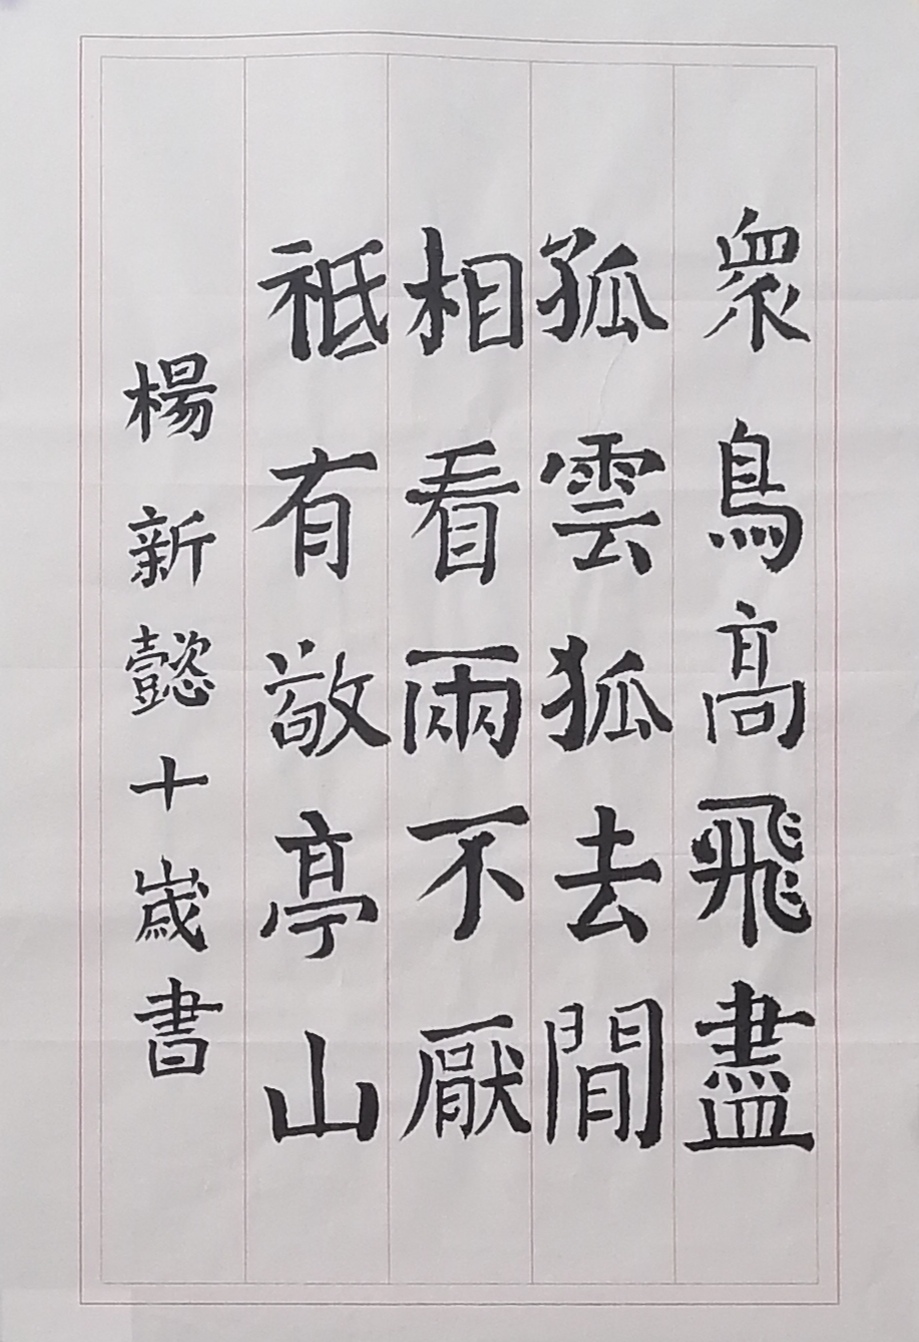 衆鳥髙飛盡
孤雲狐去間
相看兩不厭
祗有敬亭山
楊新懿十歲書